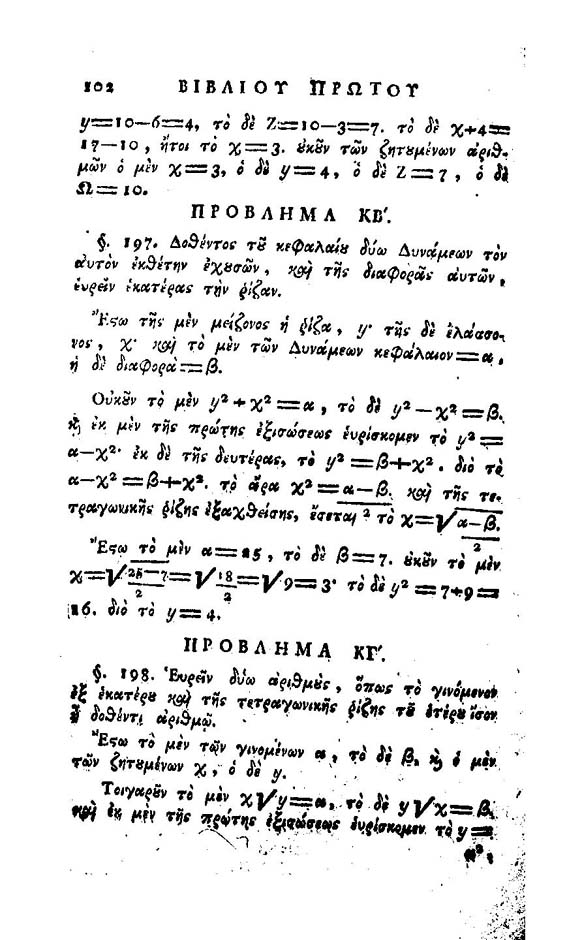 102 ΒΙΒΛΙΟΥ ΠΡΩΤΟΥ
y=10—6=4, τὸ δὲ Z=10—3=7. τὸ δὲ χ+4=
17—10, ἤτοι τὸ χ=3. ȣκȣ͂ν τῶν ζητȣμένων ἀριθ-
μῶν ὁ μὲν χ=3, ὁ δὲ y=4, ὁ δὲ Z=7, ὁ δὲ
Ω=10.
ΠΡΟΒΛΗΜΑ ΚΒ′.
§. 197. Δοθέντος τȣ͂ κεφαλαίȣ δύω Δυνάμεων τὸν
αὐτὸν ἐκθέτην ἐχȣσῶν, καὶ τῆς διαφορᾶς αὐτῶν,
ἑυρεῖν ἑκατέρας τὴν ῥίζαν.
Ἔϛω τῆς μὲν μείζονος ἡ ῥίζα, y· τῆς δὲ ἐλάασο-
νος, χ· καὶ τὸ μὲν τῶν Δυνάμεων κεφάλαιον=α,
ἡ δὲ διαφορὰ=β.
Οὐκȣ͂ν τὸ μὲν y²+χ²=α, τὸ δὲ y²—χ²=β.
ϗ ἐκ μὲν τῆς πρώτης ἐξισώσεως ἑυρίσκομεν τὸ y²=
α—χ²· ἐκ δὲ τῆς δευτέρας, τὸ y²=β+χ². διὸ τὸ
α—χ²=β+χ². τὸ ἄρα χ²=α—β. καὶ τῆς τε-
τραγωνικῆς ῥίζης ἐξαχθείσης, ἔσεται 2 τὸ χ=√α—β.
2
Ἔϛω τὸ μὲν α=25, τὸ δὲ β=7. ȣκȣ͂ν τὸ μὲν
χ=√25—7=√18=√9=3· τὸ δὲ y²=7+9=
2 2
16. διὸ τὸ y=4.
ΠΡΟΒΛΗΜΑ ΚΓ′.
§. 198. Ἑυρεῖν δύω ἀριθμȣ̀ς, ὅπως τὸ γινόμενον
ἐξ ἑκατέρȣ καὶ τῆς τετραγωνικῆς ῥίζης τȣ͂ ἑτέρȣ ἴσον
ᾖ δοθέντι ἀριθμῷ.
Ἔϛω τὸ μὲν τῶν γινομένων α, τὸ δὲ β, ϗ ὁ μὲν
τῶν ζητȣμένων χ, ὁ δὲ y.
Τοιγαρȣ͂ν τὸ μὲν χ√y=α, τὸ δὲ y√χ=β.
καὶ ἐκ μὲν τῆς πρώτης ἐξισώσεως ἑυρίσκομεν τὸ y=
α²